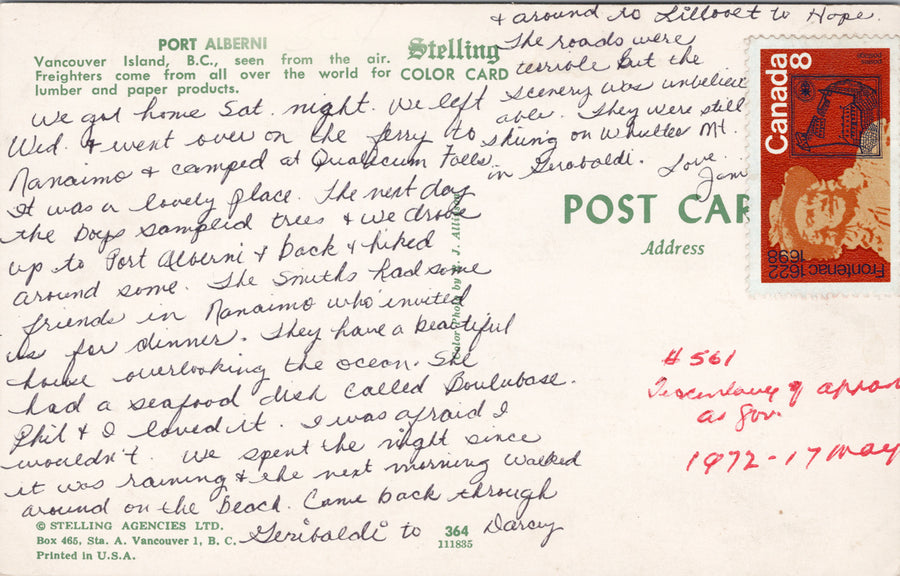 PORT ALBERNI
Vancouver Island, B.C., seen from the air.
Freighters come from all over the world for
lumber and paper products.
Stelling
COLOR CARD
We got home Sat. night. We left
Wed. & went over on the ferry to
Nanaimo & camped at Qualicum Falls.
It was a lovely place. The next day
the boys sampled trees & we drove
up to Port Alberni & back & hiked
around some. The Smiths had some
friends in Nanaimo who invited
us for dinner. They have a beautiful
house overlooking the ocean. She
had a seafood dish called Boulubase.
Phil & I loved it. I was afraid I
wouldn't. We spent the night since
it was raining & the next morning walked
around on the beach. Came back through
Geribaldi to Darcy
& around to Lillooet to Hope.
The roads were
terrible but the
scenery was unbeliev
able. They were still
skiing on Whistler Mt.
in Geribaldi. Love
Jim
POST CAR
Address
Color Photo by J. Allison
© STELLING AGENCIES LTD.
Box 465, Sta. A. Vancouver 1, B. C.
Printed in U.S.A.
364
111835
Canada
8
postes
postage
Frontenac 1622
1698
# 561
of appoi
as Gov.
1972-17 May